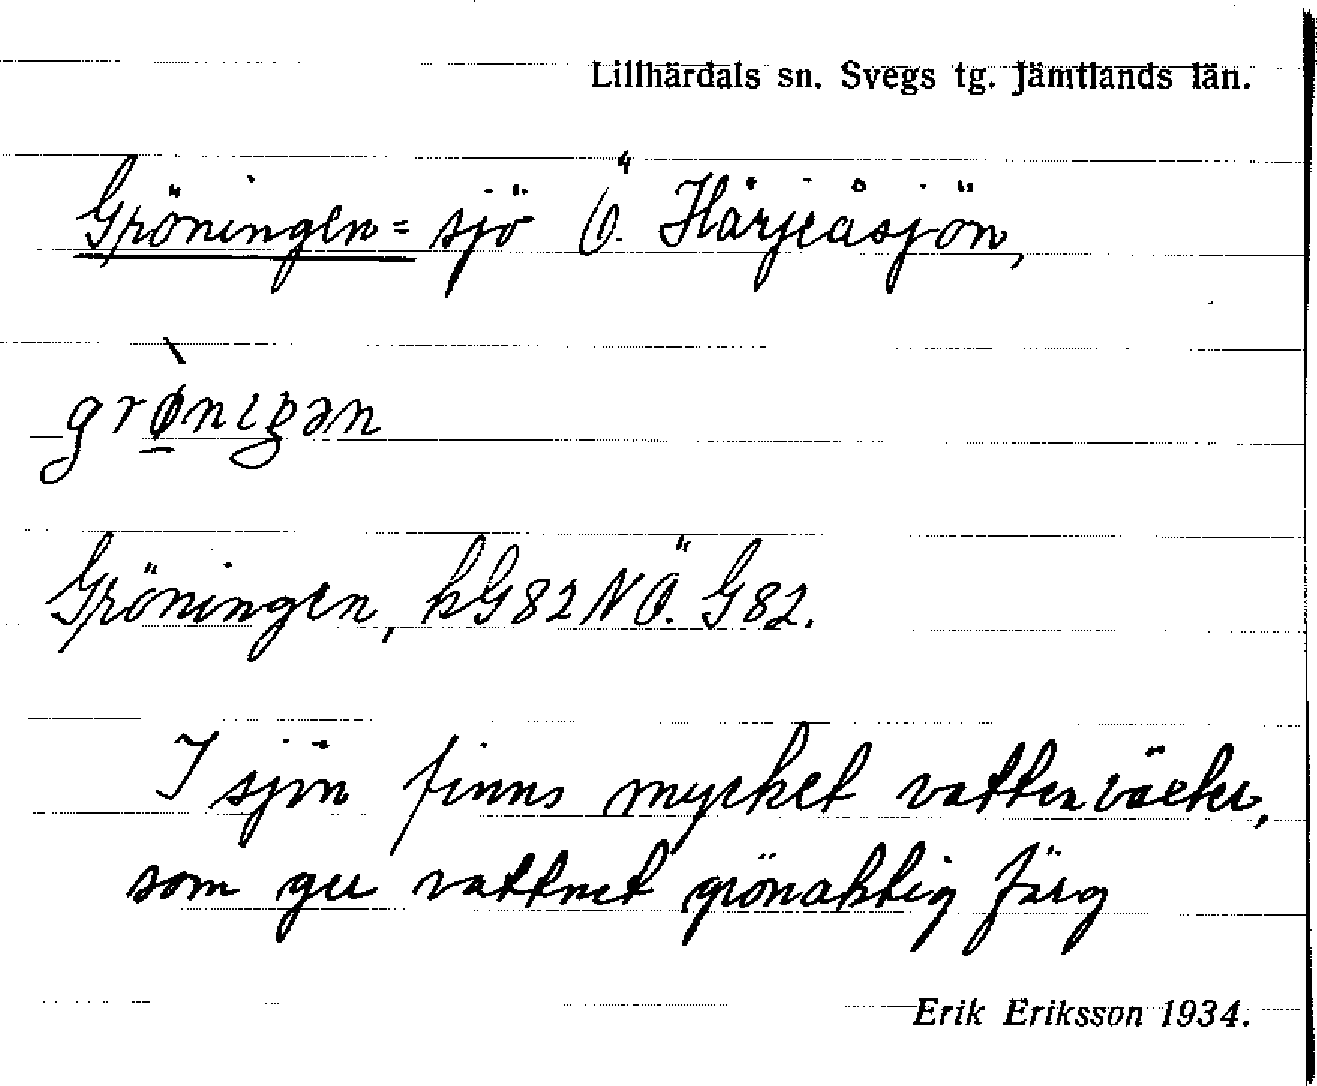 Lillhärdals sn. Svegs tg. Jämtlands län.
Gröningen = sjö Ö. Härjeåsjön,
grø̲̀nıŋən
Gröningen, kG82NÖ. G82.
I sjön finns mycket vattenväxter,
som ger vattnet grönaktig färg
Erik Eriksson 1934.